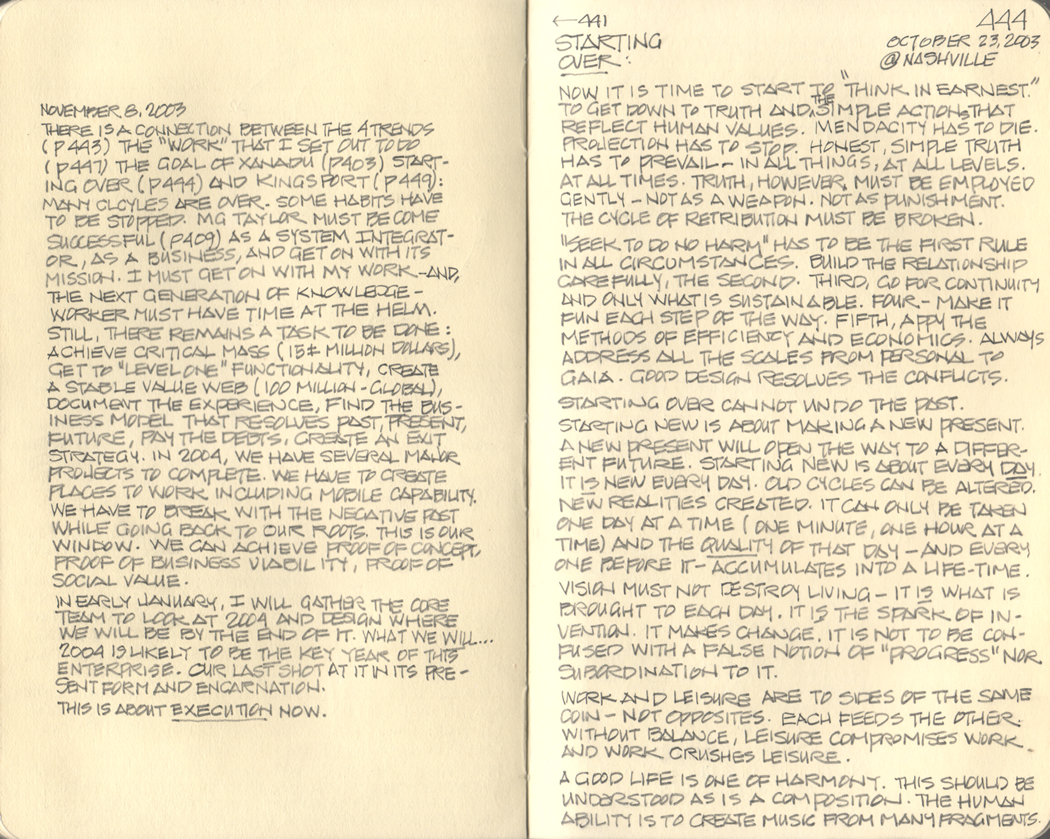 NOVEMBER 8, 2003
THERE IS A CONNECTION BETWEEN THE 4 TRENDS
(P443) THE "WORK" THAT I SET OUT TO DO
(P447) THE GOAL OF XANADU (P403) START-
ING OVER (P444) AND KINGSPORT (P449):
MANY CLCYLES ARE OVER. SOME HABITS HAVE
TO BE STOPPED. MG TAYLOR MUST BECOME
SUCCESSFUL (P409) AS A SYSTEM INTEGRAT-
OR, AS A BUSINESS, AND GET ON WITH ITS
MISSION. I MUST GET ON WITH MY WORK - AND,
THE NEXT GENERATION OF KNOWLEDGE-
WORKER MUST HAVE TIME AT THE HELM.
STILL, THERE REMAINS A TASK TO BE DONE:
ACHIEVE CRITICAL MASS (15± MILLION DOLLARS),
GET TO "LEVEL ONE" FUNCTIONALITY, CREATE
A STABLE VALUE WEB (100 MILLION - GLOBAL),
DOCUMENT THE EXPERIENCE, FIND THE BUS-
INESS MODEL THAT RESOLVES PAST, PRESENT,
FUTURE, PAY THE DEBTS, CREATE AN EXIT
STRATEGY. IN 2004, WE HAVE SEVERAL MAJOR
PROJECTS TO COMPLETE. WE HAVE TO CREATE
PLACES TO WORK INCLUDING MOBILE CAPABILITY.
WE HAVE TO BREAK WITH THE NEGATIVE PAST
WHILE GOING BACK TO OUR ROOTS. THIS IS OUR
WINDOW. WE CAN ACHIEVE PROOF OF CONCEPT,
PROOF OF BUSINESS VIABILITY, PROOF OF
SOCIAL VALUE.
IN EARLY JANUARY, I WILL GATHER THE CORE
TEAM TO LOOK AT 2004 AND DESIGN WHERE
WE WILL BE BY THE END OF IT. WHAT WE WILL...
2004 IS LIKELY TO BE THE KEY YEAR OF THIS
ENTERPRISE. OUR LAST SHOT AT IT IN ITS PRE-
SENT FORM AND ENCARNATION.
THIS IS ABOUT EXECUTION NOW.
←441
444
STARTING
OVER:
OCTOBER 23, 2003
@ NASHVILLE
NOW IT IS TIME TO START TO "THINK IN EARNEST."
TO GET DOWN TO TRUTH AND THE SIMPLE ACTIONS THAT
REFLECT HUMAN VALUES. MENDACITY HAS TO DIE.
PROJECTION HAS TO STOP. HONEST, SIMPLE TRUTH
HAS TO PREVAIL - IN ALL THINGS, AT ALL LEVELS.
AT ALL TIMES. TRUTH, HOWEVER, MUST BE EMPLOYED
GENTLY - NOT AS A WEAPON. NOT AS PUNISHMENT.
THE CYCLE OF RETRIBUTION MUST BE BROKEN.
"SEEK TO DO NO HARM" HAS TO BE THE FIRST RULE
IN ALL CIRCUMSTANCES. BUILD THE RELATIONSHIP
CAREFULLY, THE SECOND. THIRD, GO FOR CONTINUITY
AND ONLY WHAT IS SUSTAINABLE. FOUR - MAKE IT
FUN EACH STEP OF THE WAY. FIFTH, APPY THE
METHODS OF EFFICIENCY AND ECONOMICS. ALWAYS
ADDRESS ALL THE SCALES FROM PERSONAL TO
GAIA. GOOD DESIGN RESOLVES THE CONFLICTS.
STARTING OVER CANNOT UNDO THE PAST.
STARTING NEW IS ABOUT MAKING A NEW PRESENT.
A NEW PRESENT WILL OPEN THE WAY TO A DIFFER-
ENT FUTURE. STARTING NEW IS ABOUT EVERY DAY.
IT IS NEW EVERY DAY. OLD CYCLES CAN BE ALTERED.
NEW REALITIES CREATED. IT CAN ONLY BE TAKEN
ONE DAY AT A TIME (ONE MINUTE, ONE HOUR AT A
TIME) AND THE QUALITY OF THAT DAY - AND EVERY
ONE BEFORE IT - ACCUMULATES INTO A LIFE-TIME.
VISION MUST NOT DESTROY LIVING - IT IS WHAT IS
BROUGHT TO EACH DAY. IT IS THE SPARK OF IN-
VENTION. IT MAKES CHANGE. IT IS NOT TO BE CON-
FUSED WITH A FALSE NOTION OF "PROGRESS" NOR
SUBORDINATION TO IT.
WORK AND LEISURE ARE TO SIDES OF THE SAME
COIN - NOT OPPOSITES. EACH FEEDS THE OTHER.
WITHOUT BALANCE, LEISURE COMPROMISES WORK
AND WORK CRUSHES LEISURE.
A GOOD LIFE IS ONE OF HARMONY. THIS SHOULD BE
UNDERSTOOD AS IS A COMPOSITION. THE HUMAN
ABILITY IS TO CREATE MUSIC FROM MANY FRAGMENTS.